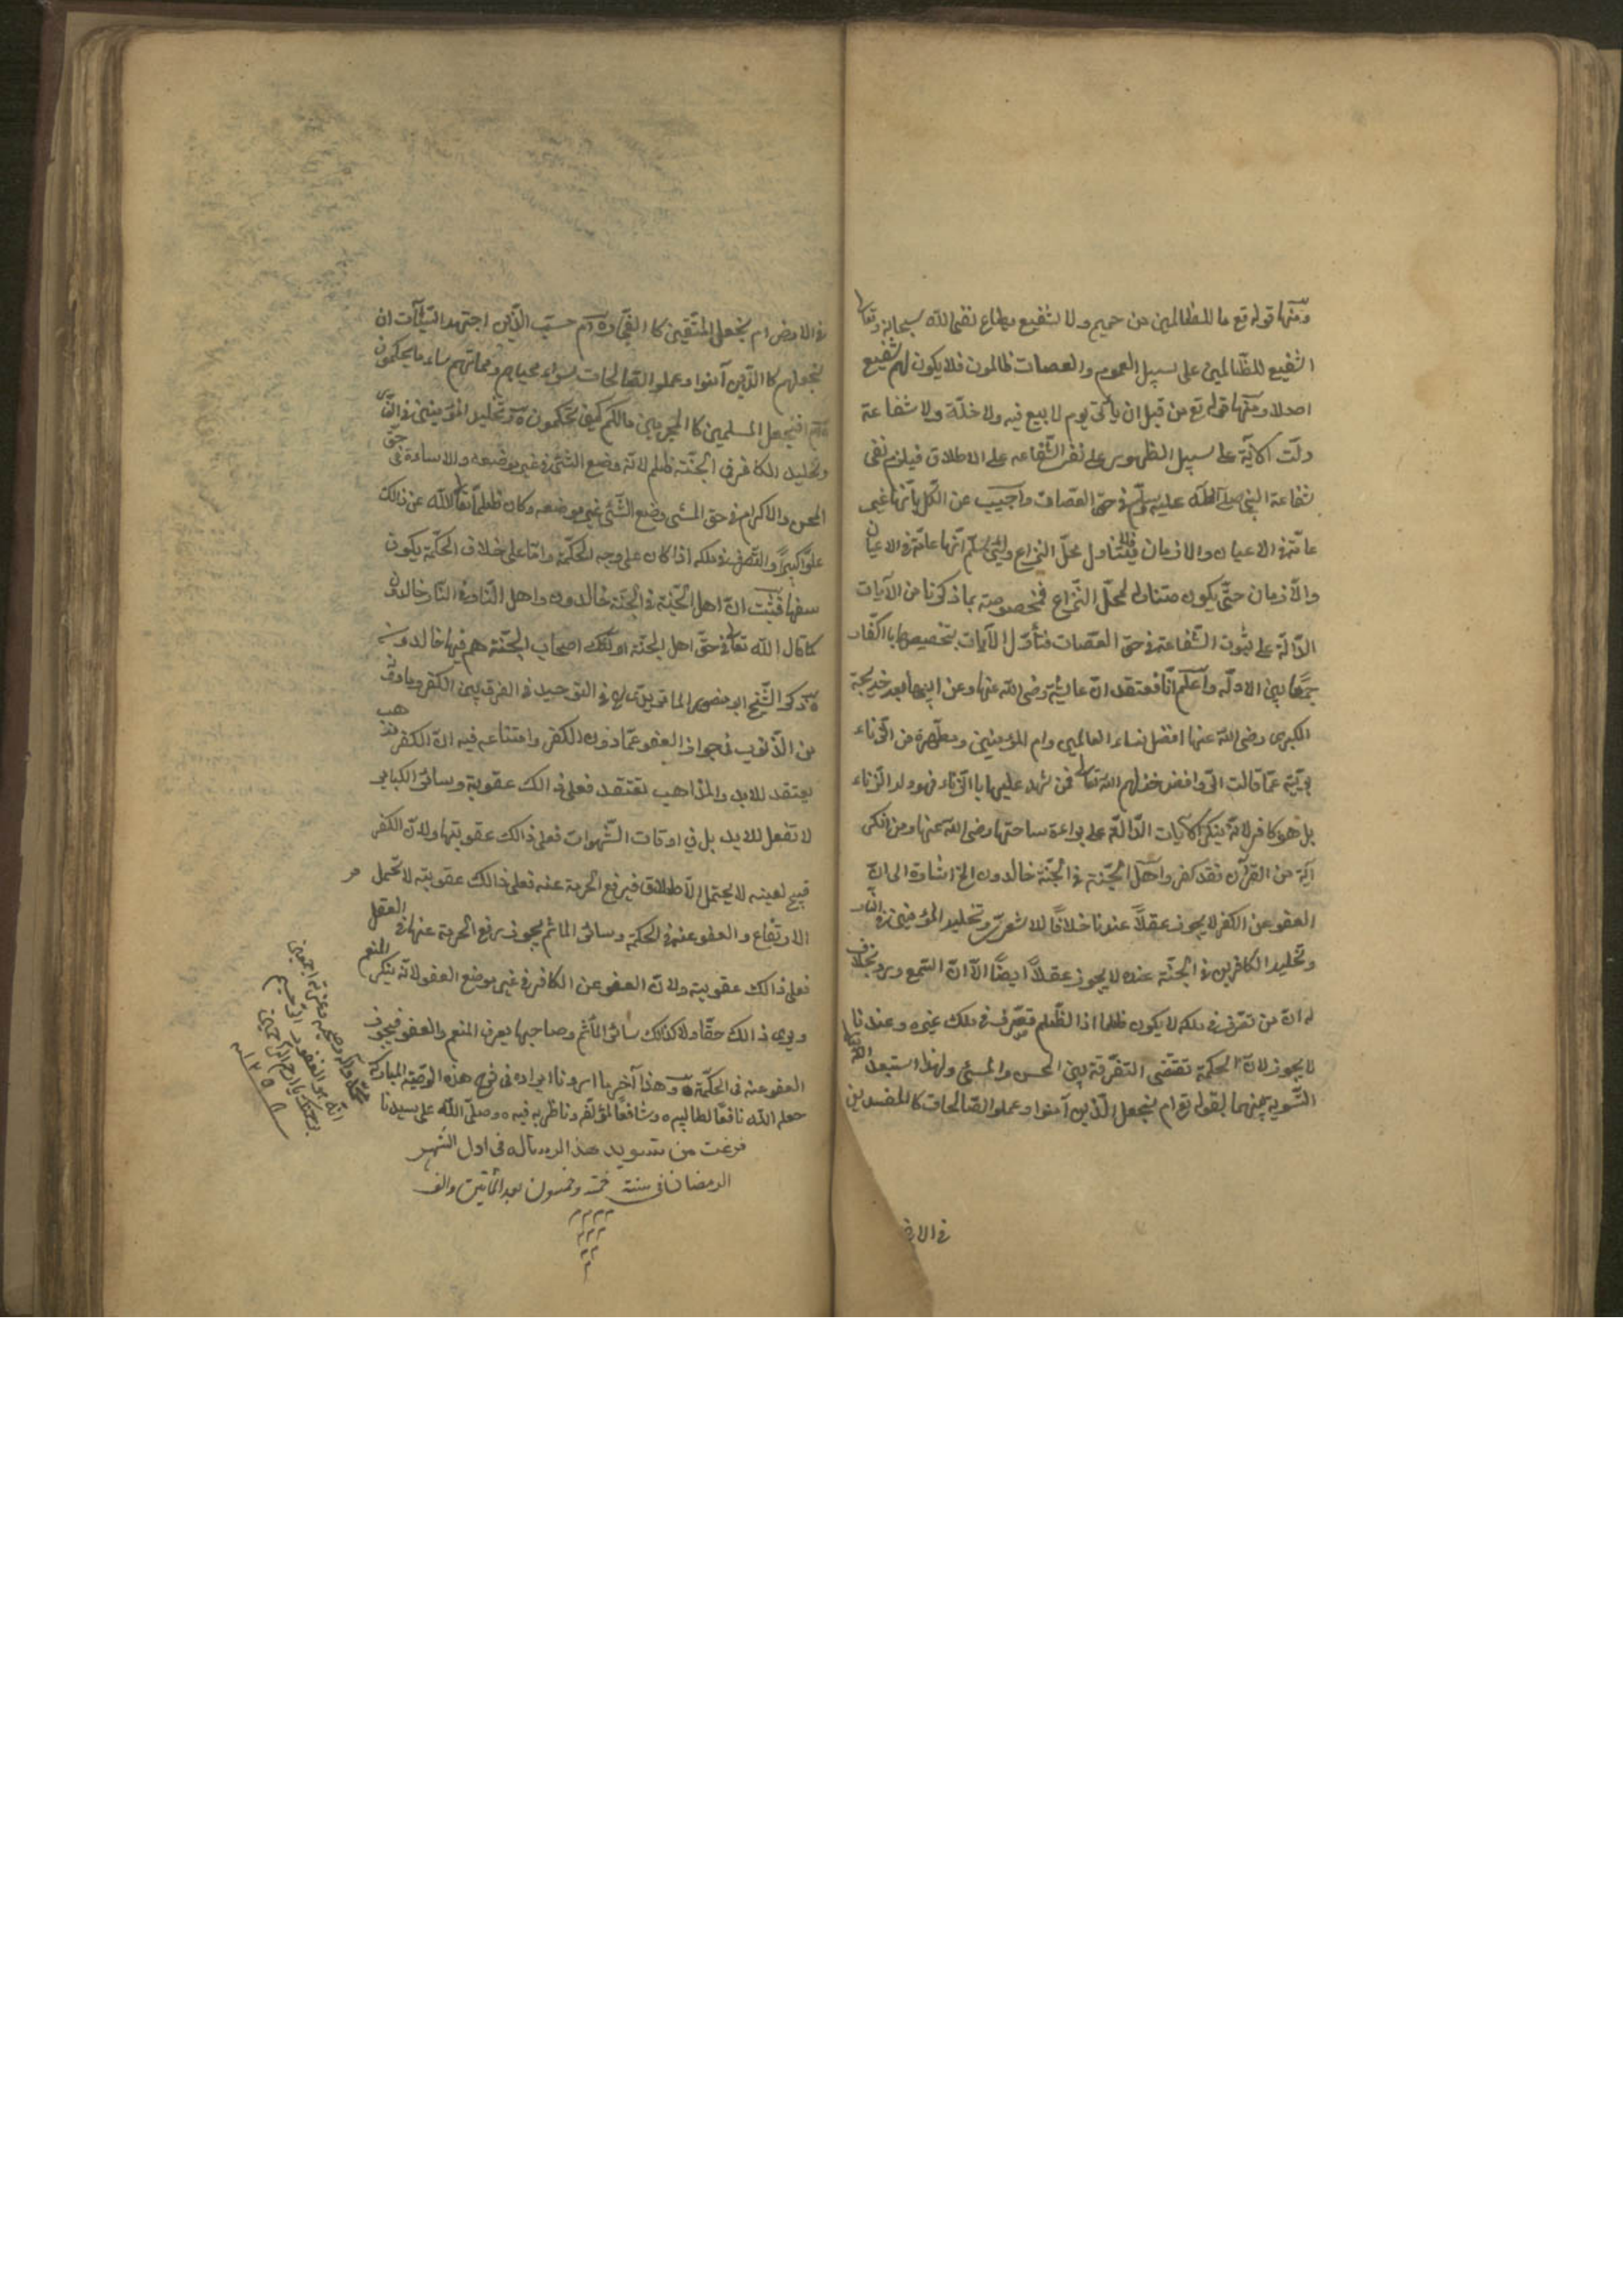 ومنها قوله تع ما للظالمين من حميم ولا شفيع يطاع نفى الله سبحانه وتعالى
الشفيع للظّالمين على سبيل العموم والعصات ظالمون فلا يكون لهم شفيع
اصلا ومنها قوله تع من قبل ان ياتى يوم لا بيع فيه ولا خلّة ولا شفاعة
دلّت الاية على سبيل الظهور على نفى الشّفاعه على الاطلاق فيلزم نفى
شفاعة النبى صلى الله عليه وسلّم فى حقّ العصات واجيب عن الكلّ بأنّها غير
عامّة فى الاعيان والازمان فلا يتناول محلّ النزاع ولئن سلّم انّها عامّة فى الاعيان
والأزمان حتّى يكون متناولا لمحلّ النّزاع فمخصوصة بما ذكرنا من الآيات
الدّالّة على ثبوت الشّفاعة فى حقّ العصات فتأوّل الآيات بتخصيصها بالكفّار
جمعًا بين الادلّه واعلم انّا نعتقد انّ عايشة رضى الله عنها وعن ابيها بعد خديجة
الكبرى رضى الله عنها افضل نساء العالمين وام المؤمنين ومطهّرة من الزّناء
بريّة عمّا قالت الرّوافض خذلهم الله تعالى فمن شهد عليها باالزّناء فهو ولد الزّناء
بل هو كافر لانّه ينكر الآيات الدّالّة على براءة ساحتها رضى الله عنها ومن انكر
آية من القرآن فقد كفر واهل الجنّة فى الجنّة خالدون الخ اشارة الى انّ
العفو عن الكفر لا يجوز عقلاً عندنا خلافًا للاشعرى وتخليد المؤمنين فى النّار
وتخليد الكافرين فى الجنّة عنده لا يجوز عقلاً ايضًا الّا انّ السّمع ورد بخلافه
له انّ من تصرّف فى ملكه لا يكون ظلما اذ الظّلم تصرّف فى ملك غيره وعندنا
لا يجوز لانّ الحكمة تقتضى التفرقة بين المحسن والمسئ ولهذا استبعد الله تعالى
التّسوية بينهما لقوله تع ام نجعل الّذين آمنوا وعملوا الصّالحات كالمفسدين
فى الار
فى الارض ام نجعل المتّقين كا الفجّار ام حسب الّذين اجترحوا السّيآت ان
نجعلهم كا الّذين آمنوا وعملوا الصّالحات سواء محياهم ومماتهم ساء ما يحكمون
افنجعل المسلمين كا المجرمين مالكم كيف تحكمون وتخليد المؤمنين فى النّار
وتخليد الكافر فى الجنّة ظلم لانّه وضع الشّئ فى غير موضعه والاساءة فى حقّ
المحسن والاكرام فى حق المسئ وضع الشّئ غير موضعه وكان ظلما تعالى الله عن ذالك
علوّا كبيرًا والتّصرف فى ملكه اذا كان على وجه الحكمة وامّا على خلاف الحكمة يكون
سفها فثبت انّ اهل الجنّة فى الجنّة خالدون واهل النّار فى النّار خالدون
كا قال الله تعالى فى حقّ اهل الجنّة اولئك اصحاب الجنّة هم فيها خالدون
ذكر الشّيخ ابو منصور الماتريدى فى التوحيد فى الفرق بين الكفر وما دونه
من الذّنوب فى جواز العفو عمّا دون الكفر وامتناعه فيه انّ الكفر مذهب
يعتقد للابد والمذاهب تعتقد فعلى ذالك عقوبة وسائر الكبائر
لا تفعل للابد بل فى اوقات الشّهوات فعلى ذالك عقوبتها ولانّ الكفر
قبيح لعينه لا يحتمل الاطلاق فيرفع الحرمة عنه فعلى ذالك عقوبته لا تحتمل
الارتفاع والعفو عنه فى الحكمة وسائر الماثم يجوز رفع الحرمة عنها فى العقل
فعلى ذالك عقوبته ولانّ العفو عن الكافر فى غير موضع العفو لانّه ينكر المنعم
ويرى ذالك حقّا ولا كذالك سائر المآثم وصاحبها يعرف المنعم والعفو فيجوز
العفو عنه فى الحكمة وهذا آخر ما اردنا ايراده فى شرح هذه الوصيّة المباركة
جعله الله نافعًا لطالبيه وشافعًا لمؤلّفه وناظريه فيه وصلّى الله على سيدنا
محمّد وآله وصحبه وعترته اجمعين
انّه هو الغفور الرّحيم
برحمتك يا ارحم الرّاحمين
فرغت من تسويد هذا الرساله فى اول الشهر
الرمضان فى سنة خمسة وخمسون بعد المأتين والف